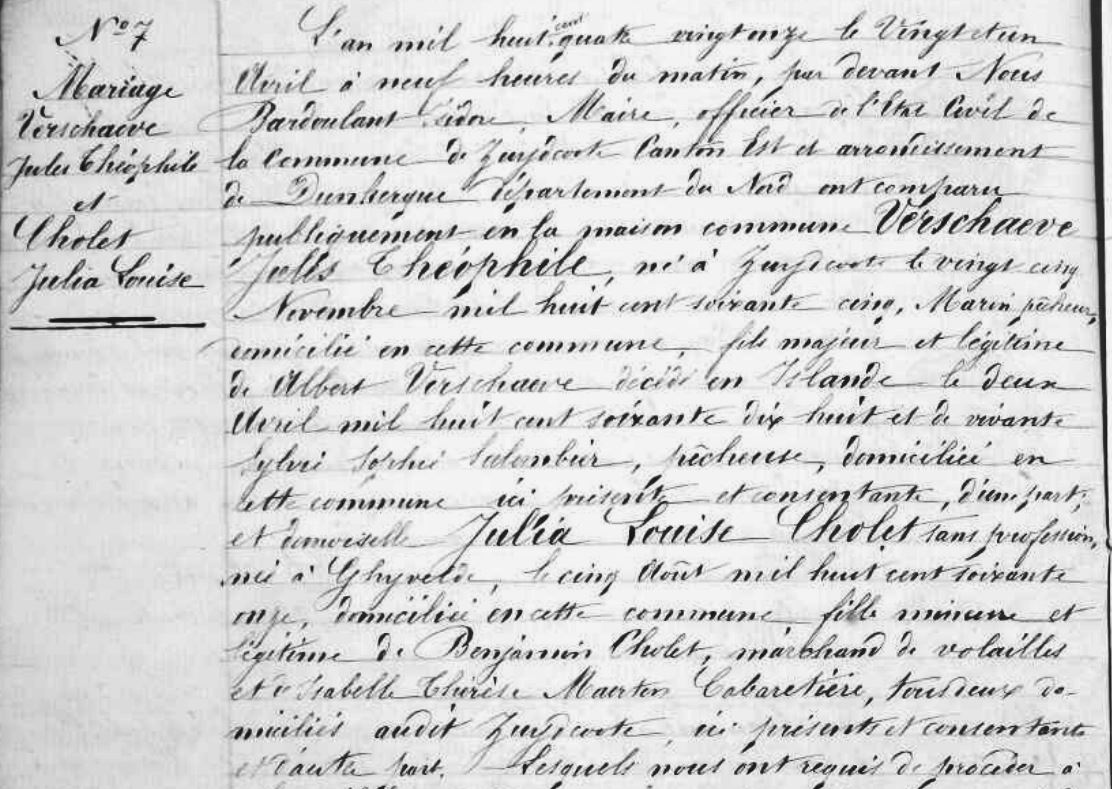 N° 7
Mariage
Verschaeve
Jules Théophile
et
Cholet
Julia Louise
L'an mil huit cent quatre vingt onze le Vingt et un
Avril à neuf heures du matin, par devant Nous
Bardoulant Isidore, Maire, officier de l'Etat Civil de
la Commune de Zuydcoote Canton Est et arrondissement
de Dunkerque département du Nord ont comparu
publiquement en la maison commune Verschaeve
Jules Théophile, né à Zuydcoote le vingt cinq
Novembre mil huit cent soixante cinq, Marin pêcheur,
domicilié en cette commune, fils majeur et légitime
de Albert Verschaeve décédé en Islande le deux
Avril mil huit cent soixante dix huit et de vivante
Sylvie Sophie, pêcheuse, domiciliée en
cette commune ici présente et consentante, d'une part,
et demoiselle Julia Louise Cholet sans profession,
née à Ghyvelde, le cinq Août mil huit cent soixante
onze, domiciliée en cette commune fille mineure et
légitime de Benjamin Cholet, marchand de volailles
et d'Isabelle Thérèse Maerten Cabaretière, tous deux do-
miciliés audit Zuydcoote ici présents et consentants
et d'autre part. Lesquels nous ont requis de procéder à